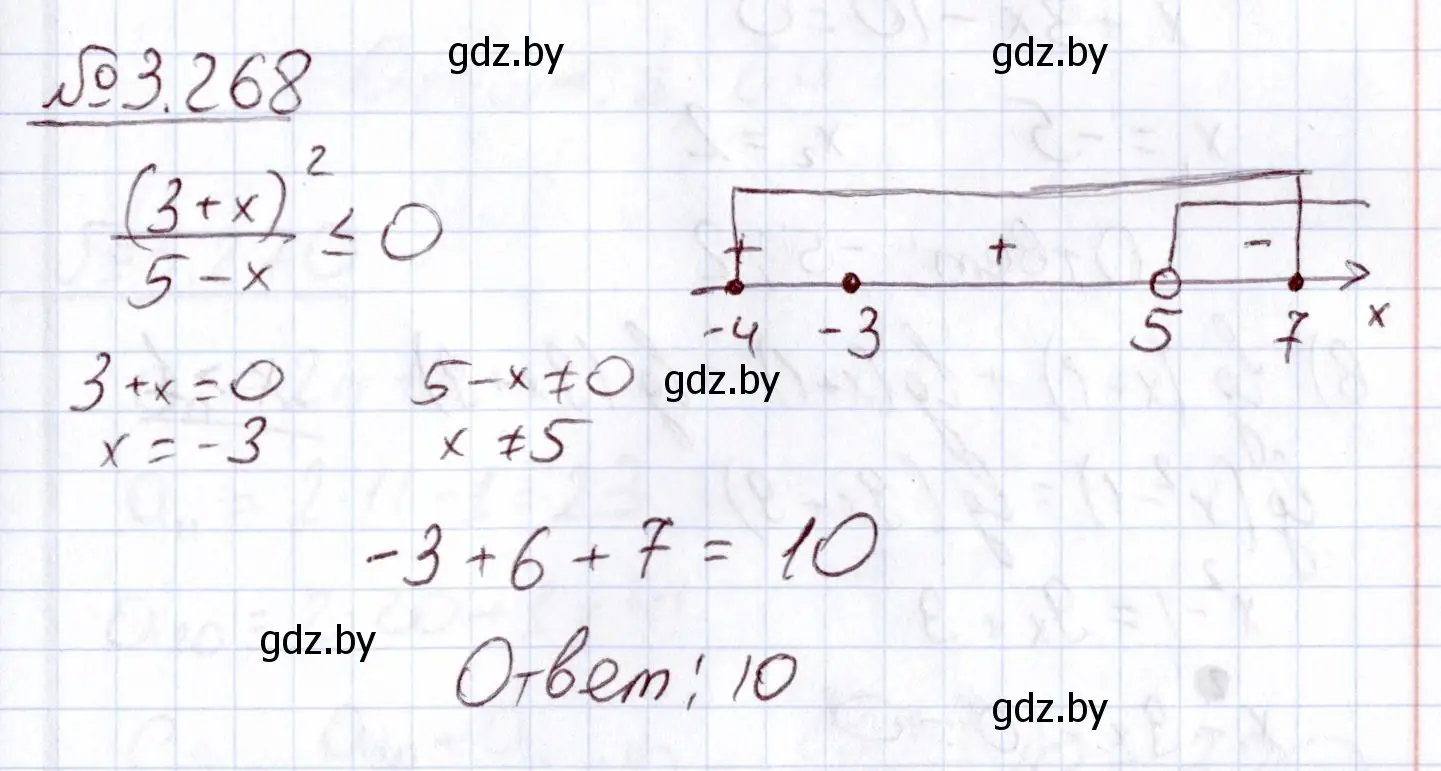 gdz.by gdz.by
№3.268
(3+x)² / 5-x ≤ 0
+ + -
-4 -3 5 7 x
3+x=0 5-x≠0
gdz.by
x=-3 x≠5
-3+6+7=10
gdz.by
Ответ: 10
gdz.by